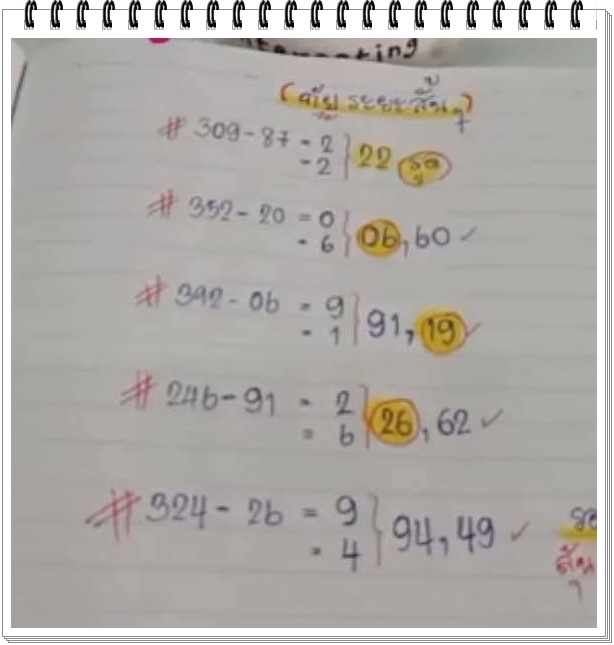 interesting
(จับ ระยะสั้น ๆ)
# 309-87 = 2 } 22 รอ
= 2
# 352-20 = 0 } 06, 60 ✓
= 6
# 392-06 = 9 } 91, 19 ✓
= 1
# 246-91 = 2 } 26, 62 ✓
= 6
# 324-26 = 9 } 94, 49 ✓
= 4